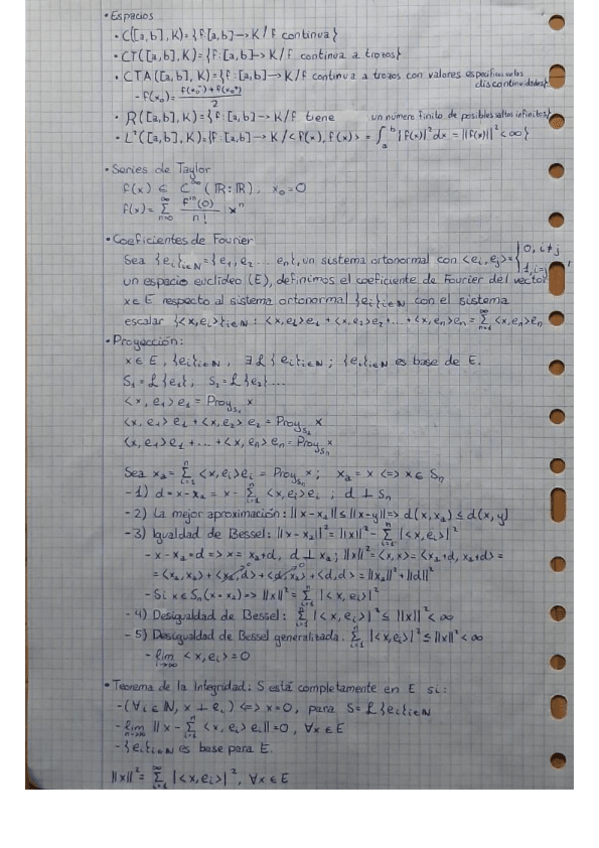 • Espacios
• C([a,b],K)={f:[a,b]→K/f continua}
• CT([a,b],K)={f:[a,b]→K/f continua a trozos}
• CTA([a,b],K)={f:[a,b]→K/f continua a trozos con valores
discontinuidades}
- f(x₀)=(f(x₀⁻)+f(x₀⁺))/2
• R([a,b],K)={f:[a,b]→K/f tiene un número finito de posibles saltos infinitos}
• L²([a,b],K)={f:[a,b]→K/<f(x),f(x)> = ∫ₐᵇ|f(x)|²dx = ||f(x)||²<∞}
• Series de Taylor
f(x) ∈ C^∞(ℝ:ℝ), x₀=0
f(x)= Σ_{n=0}^∞ fⁿ(0)/n! xⁿ
• Coeficientes de Fourier
Sea {eᵢ}ᵢ∈ℕ={e₁,e₂ ... eₙ}, un sistema ortonormal con <eᵢ,eⱼ>={0, i≠j
1, i=j
un espacio euclídeo (E), definimos el coeficiente de Fourier del vector
x∈E respecto al sistema ortonormal {eᵢ}ᵢ∈ℕ con el sistema
escalar {<x,eᵢ>}ᵢ∈ℕ: <x,e₁>e₁ + <x,e₂>e₂+...+<x,eₙ>eₙ=Σ_{n=1}^∞<x,eₙ>eₙ
• Proyección:
x∈E, {eᵢ}ᵢ∈ℕ, ∃ L{eᵢ}ᵢ∈ℕ; {eᵢ}ᵢ∈ℕ es base de E.
S₁=L{e₁}, S₂=L{e₂}...
<x,e₁>e₁ = Proy_{S₁} x
<x,e₁>e₁ + <x,e₂>e₂ = Proy_{S₂} x
<x,e₁>e₁ +...+ <x,eₙ>eₙ = Proy_{Sₙ} x
Sea xₐ=Σ_{i=1}^n <x,eᵢ>eᵢ = Proy_{Sₙ} x; xₐ=x <=> x∈Sₙ
- 1) d=x-xₐ = x- Σ_{i=1}^n <x,eᵢ>eᵢ ; d ⊥ Sₙ
- 2) La mejor aproximación: ||x-xₐ||≤||x-y||=> d(x,xₐ)≤d(x,y)
- 3) Igualdad de Bessel: ||x-xₐ||²=||x||²- Σ_{i=1}^n |<x,eᵢ>|²
- x-xₐ=d => x=xₐ+d, d⊥xₐ; ||x||²=<x,x>=<xₐ+d,xₐ+d>=
=<xₐ,xₐ>+<xₐ,d>⁰+<d,xₐ>⁰+<d,d>=||xₐ||²+||d||²
- Si x∈Sₙ(x=xₐ)=> ||x||²=Σ_{i=1}^n |<x,eᵢ>|²
- 4) Desigualdad de Bessel: Σ_{i=1}^n |<x,eᵢ>|²≤||x||²<∞
- 5) Desigualdad de Bessel generalizada. Σ_{i=1}^n |<x,eᵢ>|²≤||x||²<∞
- lim_{i→∞} <x,eᵢ>=0
• Teorema de la Integridad: S está completamente en E si:
- (∀i∈ℕ, x ⊥ eᵢ) <=> x=0, para S=L{eᵢ}ᵢ∈ℕ
- lim_{n→∞} ||x-Σ_{i=1}^n <x,eᵢ>eᵢ||=0, ∀x∈E
- {eᵢ}ᵢ∈ℕ es base para E.
||x||²=Σ_{i=1}^∞ |<x,eᵢ>|², ∀x∈E